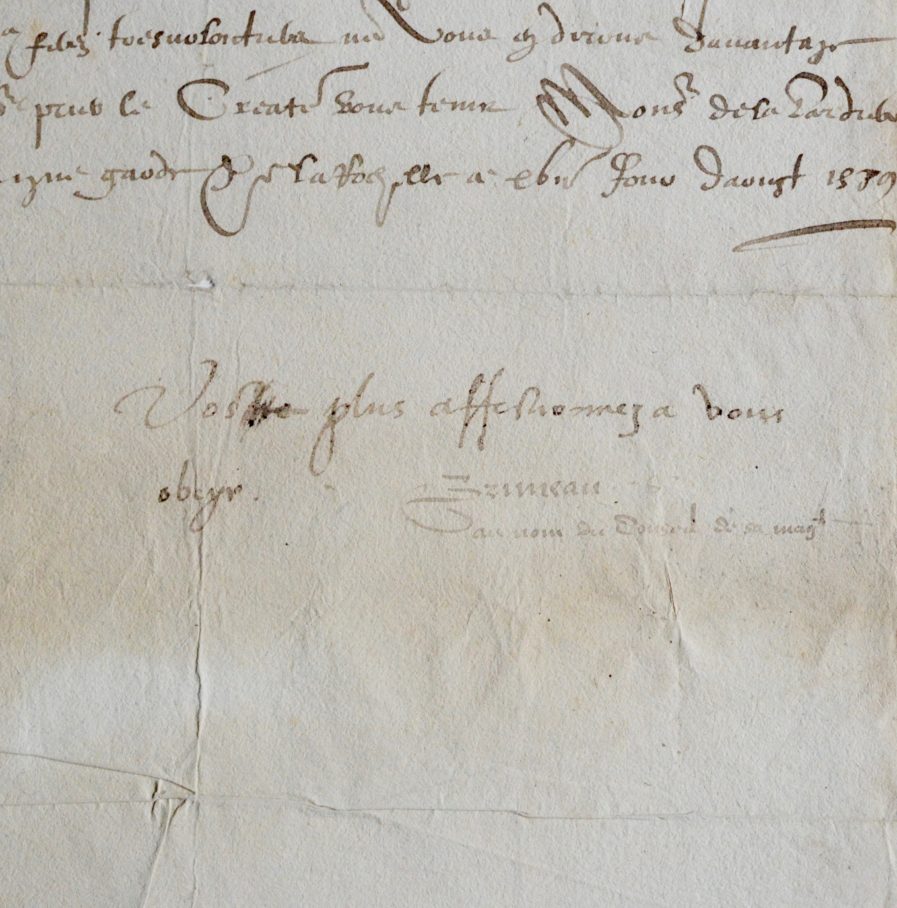 ferez tresvolontiers ne vous en dirons davantage
prier le Creater vous tenir Monsr de la
garde De la Rochelle ce Jour daoust 1579
Vostre plus affectionnez a vous
obeyr.
Bruneau
au nom du Conseil de sa magté